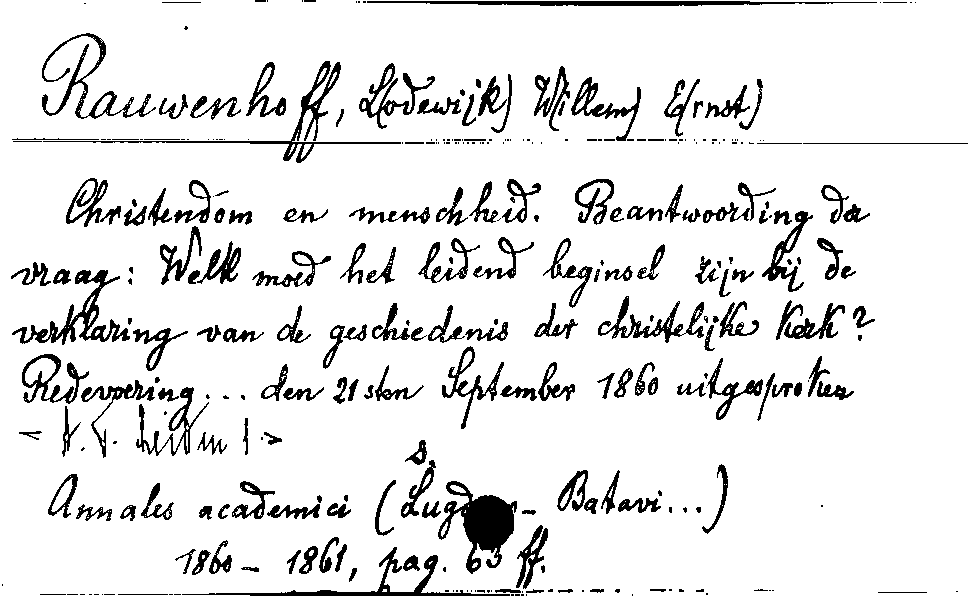 Rauwenhoff, L(odewijk) W(illem) E(rnst)
Christendom en menschheid. Beantwoording der
vraag: Welk moed het leidend beginsel zijn bij de
verklaring van de geschiedenis der christelijke Kerk?
Redevoering... den 21sten September 1860 uitgesproken
s.
Annales academici (Lugd - Batavi...)
1860 - 1861, pag. 63 ff.